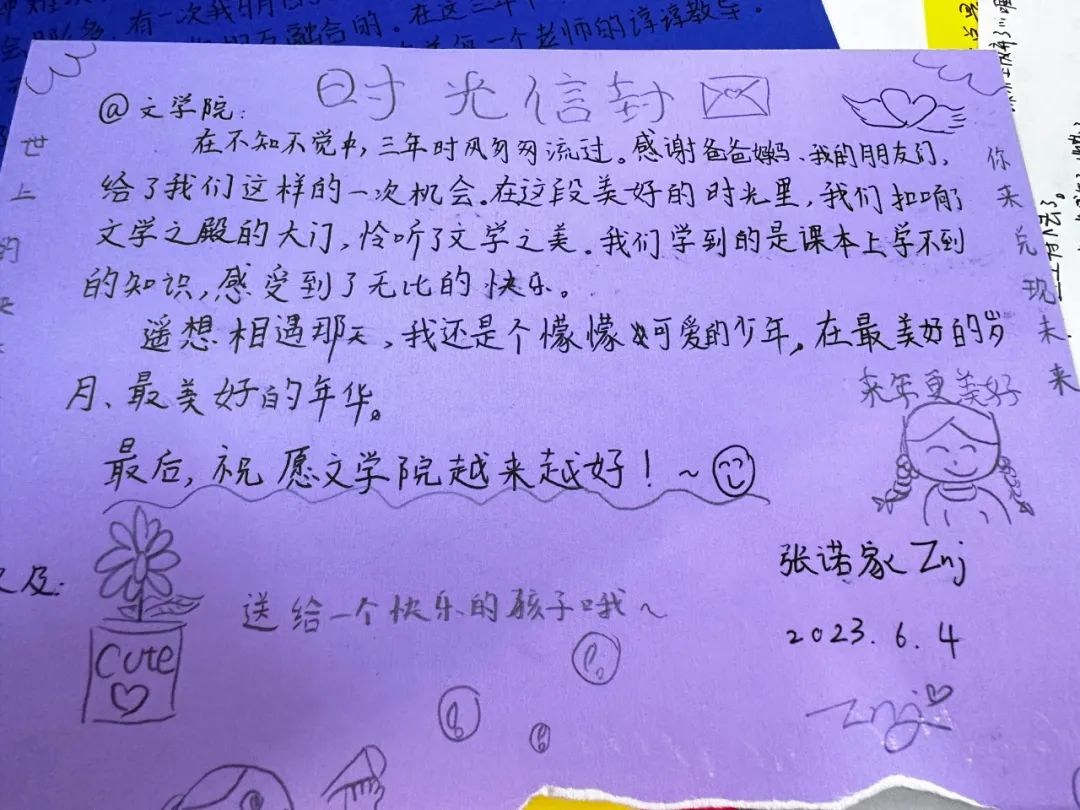 有一次我
融合的。在这三年
一个老师的谆谆教导。
时光信封
@文学院:
在不知不觉中,三年时风匆匆流过。感谢爸爸妈妈、我的朋友们,
给了我们这样的一次机会。在这段美好的时光里,我们扣响了
文学之殿的大门,怜听了文学之美。我们学到的是课本上学不到
的知识,感受到了无比的快乐。
遥想相遇那天,我还是个懞懞可爱的少年,在最美好的岁
月、最美好的年华。
最后,祝愿文学院越来越好!~
世上的
你来兑现未来
来年更美好
张诺家 Znj
2023.6.4
Znj
又及:
送给一个快乐的孩子哦~
Cute